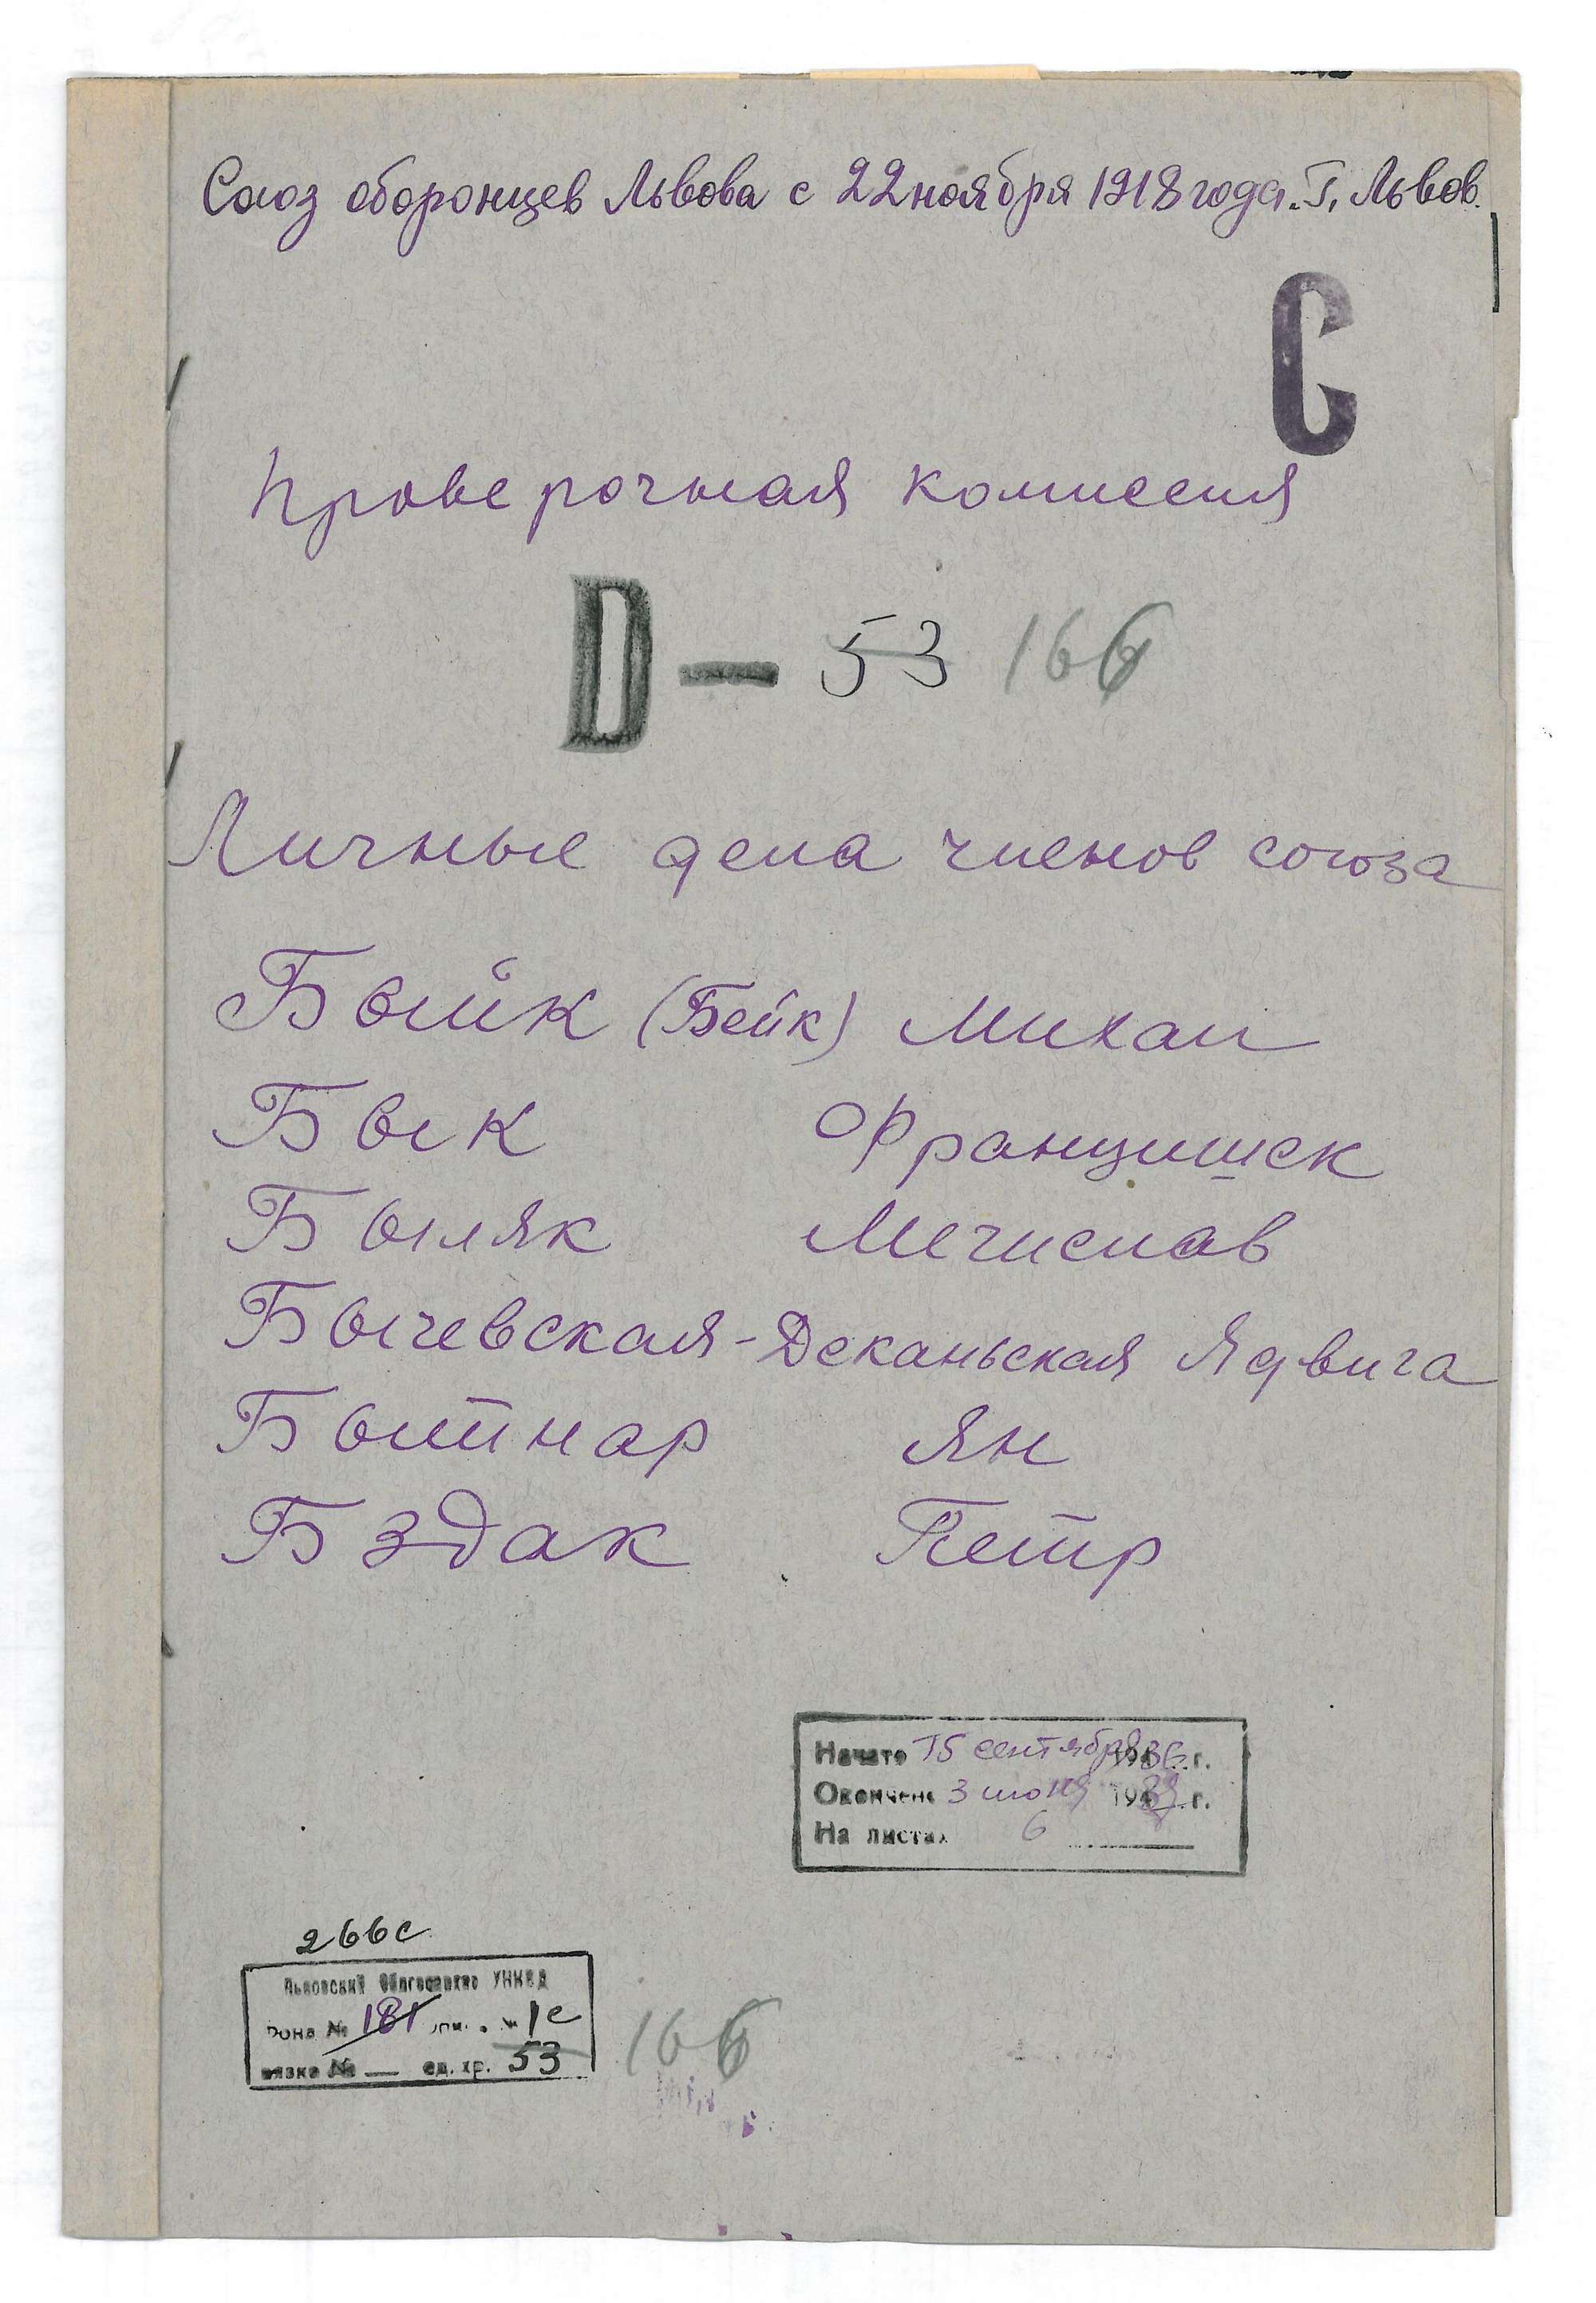 Союз оборонцев Львова с 22 ноября 1918 года. Г. Львов.
С
Проверочная комиссия
D — 53 166
Личные дела членов союза
Быйк (Бейк) Михал
Бык Францишек
Быляк Мечислав
Бычевская-Деканьская Ядвига
Бытнар Ян
Бздак Петр
Начато 15 сентября 1936 г.
Окончено 3 июня 1939 г.
На листах 6
266с
Львовский Облгосархив УНКВД
Фонд № 181 опись № 1с
вязка № — ед. хр. 53
166